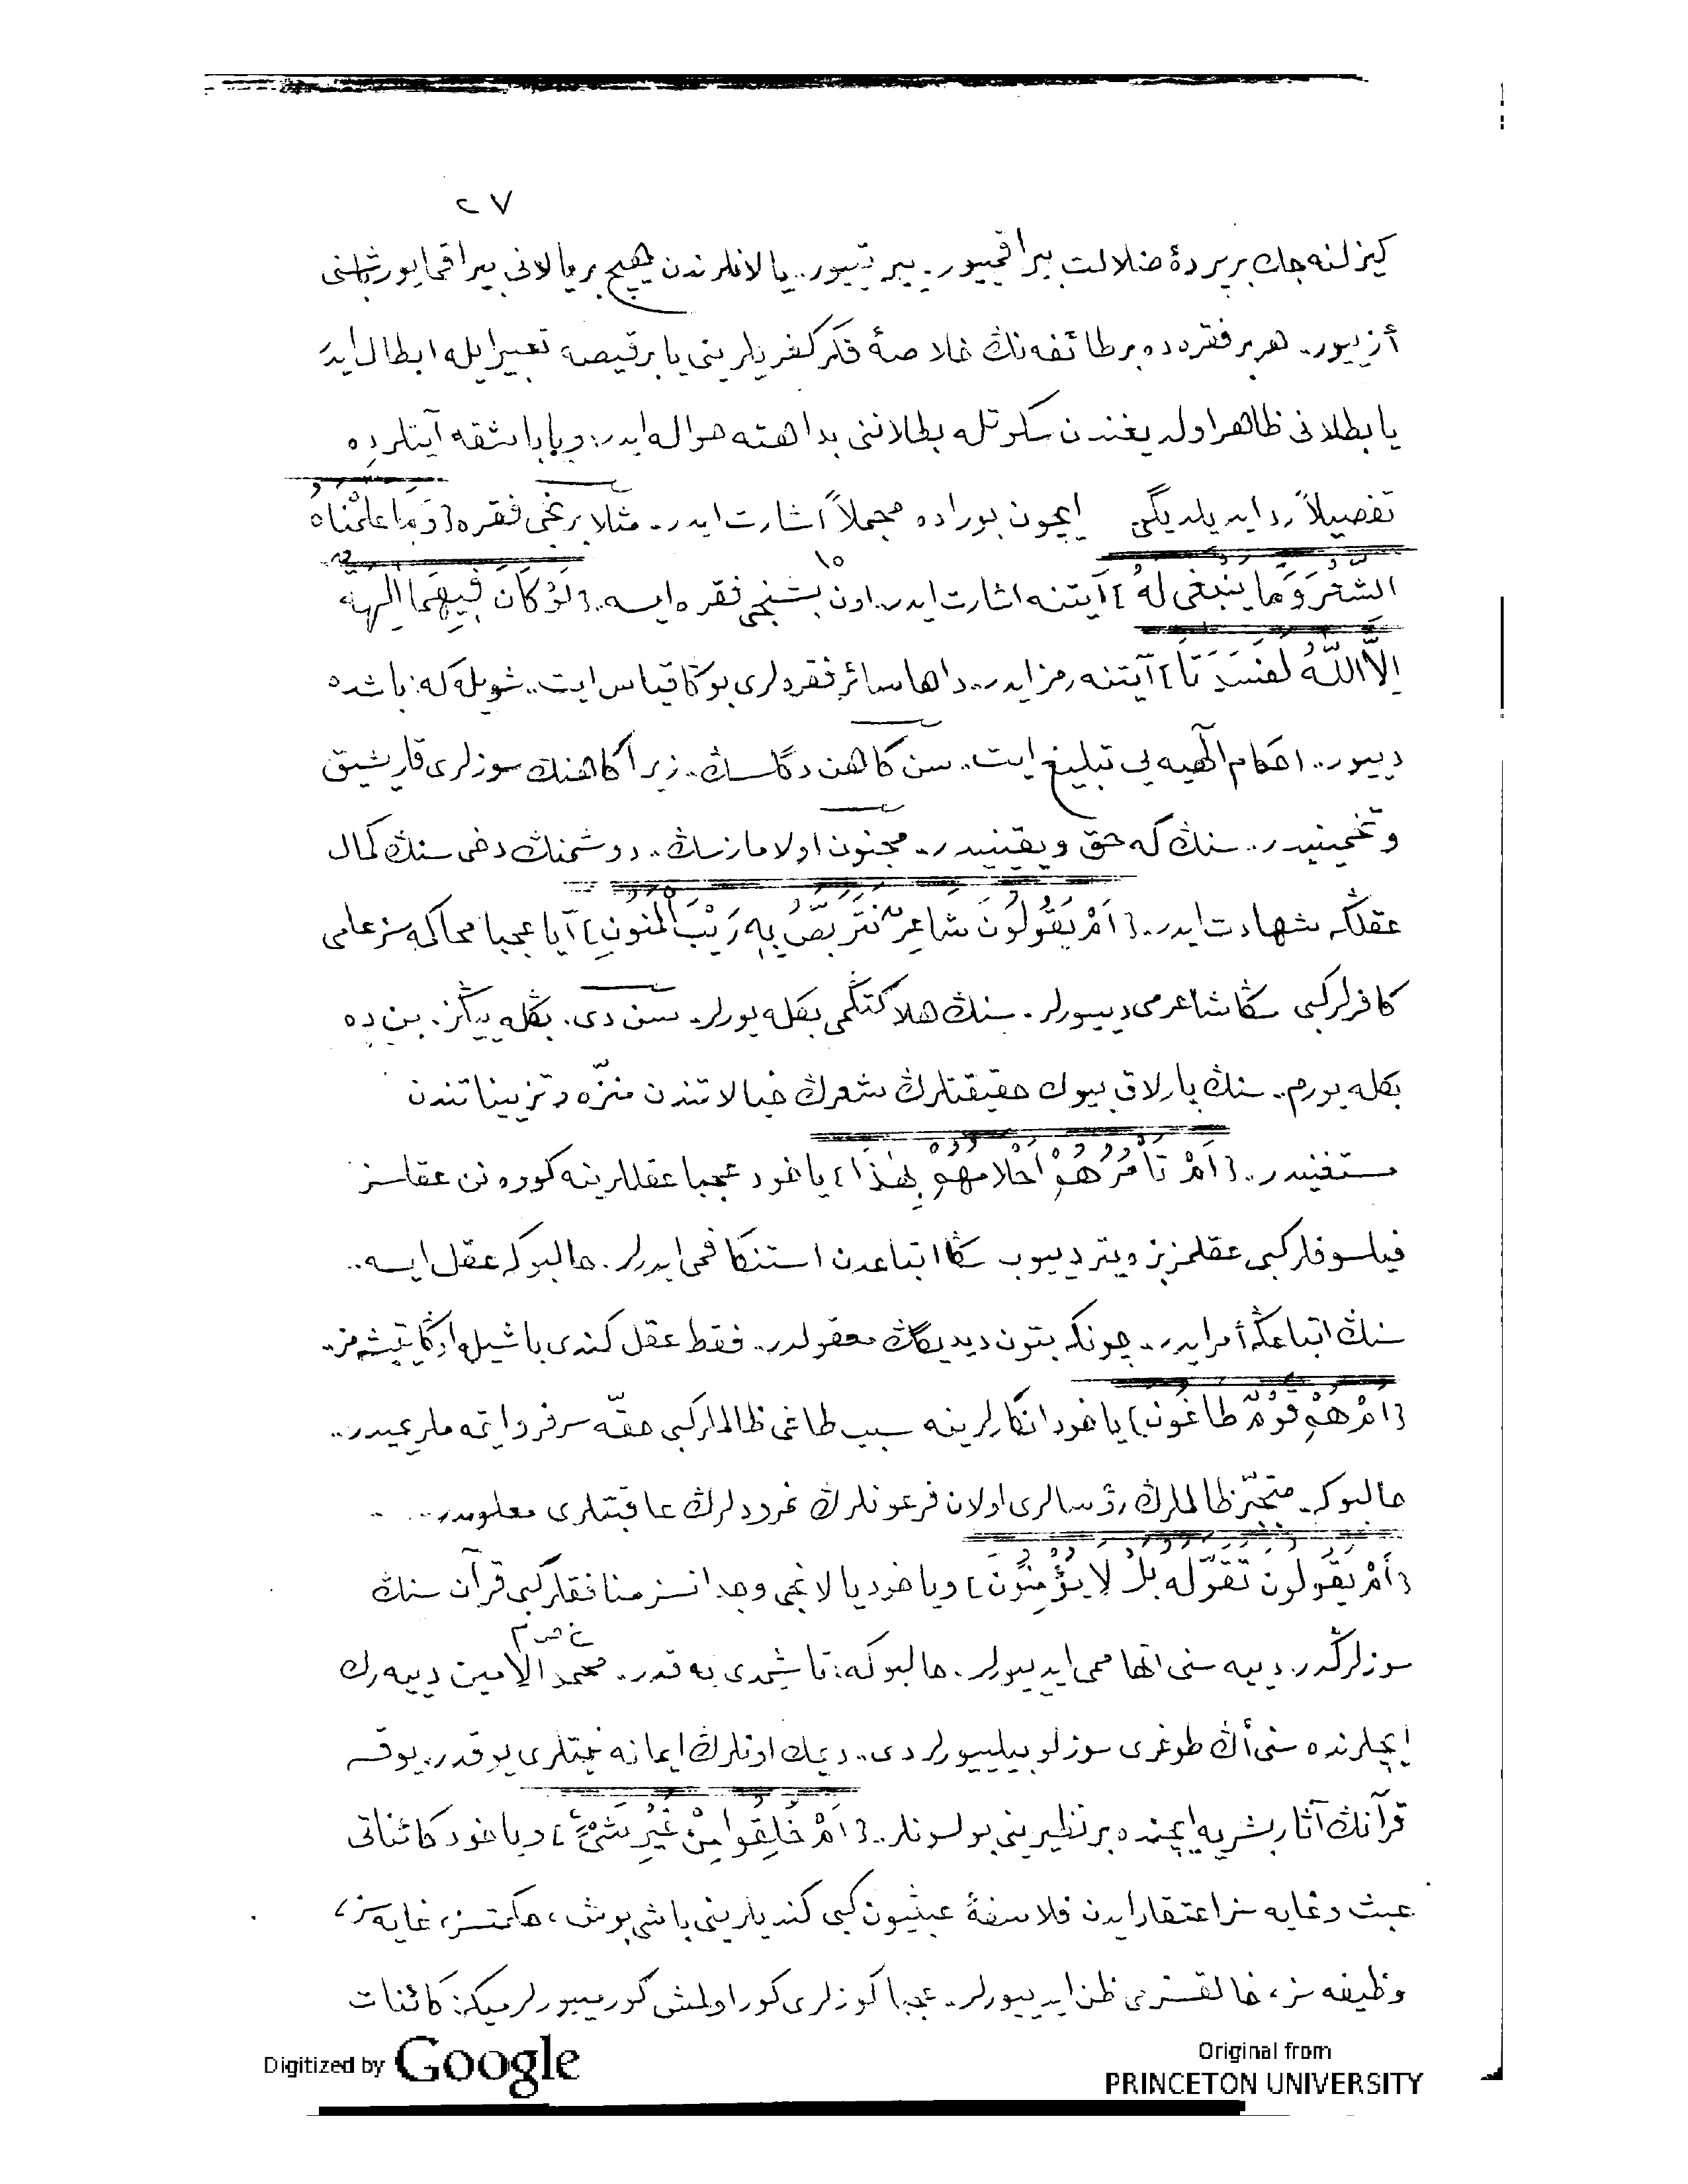 ٢٧
كيزلنه جك بر پرده‌ٔ ضلالت بيراقمييور.. ييرتييور.. يالانلرندن هيچ بر يالانى بيراقمايور باشنى
أزييور.. هر بر فقره ده بر طائفه نك خلاصه‌ٔ فكر كفريلرينى يا بر قيصه تعبير ايله ابطال ايدر
يا بطلانى ظاهر اولديغندن سكوتله بطلاننى بداهته حواله ايدر: ويا باشقه آيتلرده
تفصيلاً رد ايديلديگى ايچون بوراده مجملاً اشارت ايدر.. مثلا برنجى فقره {وَمَا عَلَّمْنَاهُ
الشِّعْرَ وَمَا يَنْبَغِى لَهُ} آيتنه اشارت ايدر.. اون بشنجى ١٥ فقره ايسه.. {لَوْ كَانَ فِيهِمَا اٰلِهَةٌ
اِلاَّ اللّٰهُ لَفَسَدَتَا} آيتنه رمز ايدر.. داها سائر فقره لرى بوڭا قياس ايت.. شويله كه: باشده
دييور.. احكام الٓهيه يى تبليغ ايت.. سن كاهن دگلسڭ.. زيرا كاهنك سوزلرى قاريشيق
و تخمينيدر.. سنڭ كه حق و يقينيدر.. مجنون اولامازسڭ.. دوشمنڭ دخى سنڭ كمال
عقلڭه شهادت ايدر.. {اَمْ يَقُولُونَ شَاعِرٌ نَتَرَبَّصُ بِهِ رَيْبَ الْمَنُونِ} آيا عجبا محاكمه سز عامى
كافرلر كبى سڭا شاعرمى دييورلر. سنڭ هلاكتڭمى بكله يورلر.. سن دى. بكله يڭز. بن ده
بكله يورم.. سنڭ پارلاق بيوك حقيقتلرڭ شعرڭ خيالاتندن منزّه و تزييناتندن
مستغنيدر.. {اَمْ تَأْمُرُهُمْ اَحْلاَمُهُمْ بِهٰذَا} ياخود عجبا عقللرينه كووه نن عقلسز
فيلسوفلر كبى عقلمز بزه يتر دييوب سڭا اتباعدن استنكافمى ايدرلر. حالبوكه عقل ايسه..
سنڭ اتباعڭه أمر ايدر.. چونكه بتون ديديگڭ معقولدر.. فقط عقل كندى باشيله اوڭا يتيشمز..
{اَمْ هُمْ قَوْمٌ طَاغُونَ} ياخود انكارلرينه سبب طاغى ظالملر كبى حقّه سرفرو ايتمه ملريميدر..
حالبوكه متجبّر ظالملرڭ رؤسالرى اولان فرعونلرڭ نمرودلرڭ عاقبتلرى معلومدر..
{اَمْ يَقُولُونَ تَقَوَّلَهُ بَلْ لاَ يُؤْمِنُونَ} وياخود يالانجى وجدانسز منافقلر كبى قرآن سنڭ
سوزلرڭدر. دييه سنى اتهاممى ايدييورلر. حالبوكه: تا شيمدى يه قدر.. محمد الامين دييه رك
ايچلرنده سنى أڭ طوغرى سوزلو بيلييورلردى.. ديمك اونلرڭ ايمانه نيتلرى يوقدر. يوقسه
قرآنڭ آثار بشريه ايچنده بر نظيرينى بولسونلر.. {اَمْ خُلِقُوا مِنْ غَيْرِ شَىْءٍ} وياخود كائناتى
عبث و غايه سز اعتقاد ايدن فلاسفه‌ٔ عبثيون كبى كنديلرينى باشى بوش، حكمتسز، غايه سز،
وظيفه سز، خالقسزمى ظن ايدييورلر.. عجبا كوزلرى كور اولمش كورمييورلر ميكه: كائنات
Digitized by Google
Original from
PRINCETON UNIVERSITY